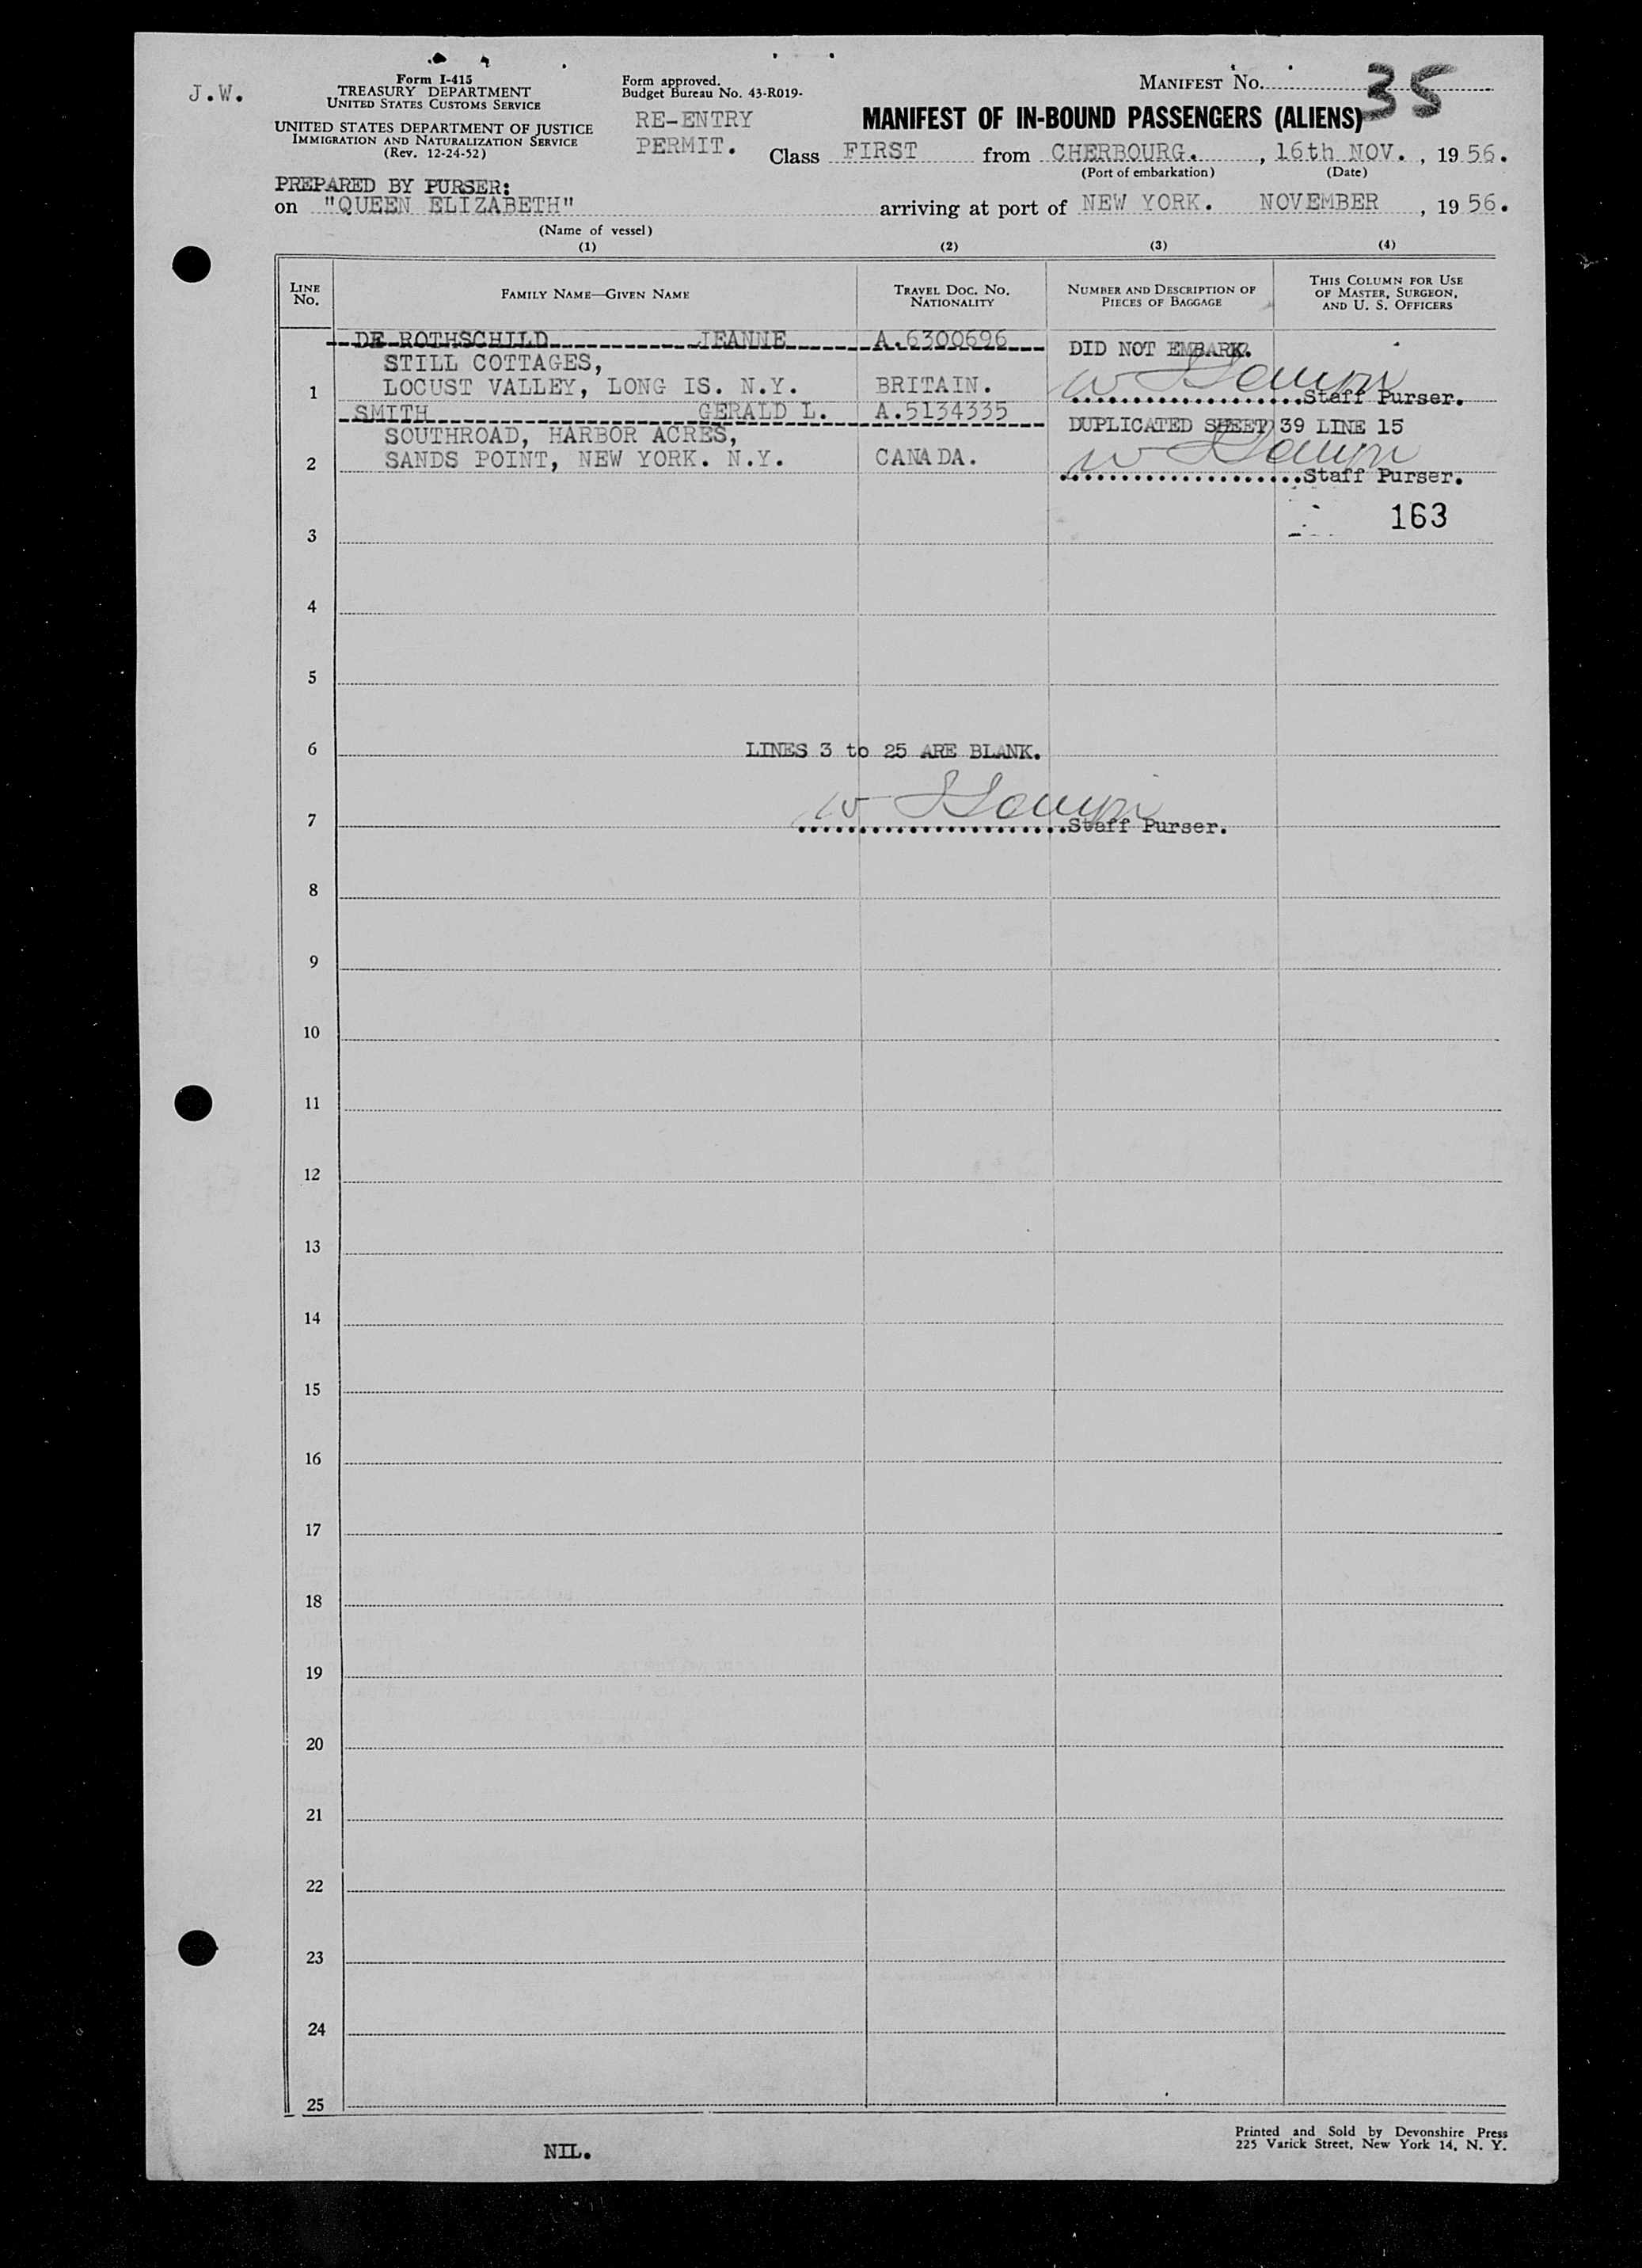 J.W.
Form I-415
TREASURY DEPARTMENT
UNITED STATES CUSTOMS SERVICE
UNITED STATES DEPARTMENT OF JUSTICE
IMMIGRATION AND NATURALIZATION SERVICE
(Rev. 12-24-52)
Form approved.
Budget Bureau No. 43-R019-
RE-ENTRY
PERMIT.
MANIFEST NO. 35
MANIFEST OF IN-BOUND PASSENGERS (ALIENS)
Class FIRST from CHERBOURG. , 16th NOV. , 1956.
(Port of embarkation) (Date)
PREPARED BY PURSER:
on "QUEEN ELIZABETH" arriving at port of NEW YORK. NOVEMBER , 1956.
(Name of vessel)
(1) (2) (3) (4)
LINE No. FAMILY NAME—GIVEN NAME TRAVEL DOC. NO. NATIONALITY NUMBER AND DESCRIPTION OF PIECES OF BAGGAGE THIS COLUMN FOR USE OF MASTER, SURGEON, AND U. S. OFFICERS
DE ROTHSCHILD JEANNE A.6300696 DID NOT EMBARK.
STILL COTTAGES,
1 LOCUST VALLEY, LONG IS. N.Y. BRITAIN. Staff Purser.
SMITH GERALD L. A.5134335 DUPLICATED SHEET 39 LINE 15
SOUTHROAD, HARBOR ACRES,
2 SANDS POINT, NEW YORK. N.Y. CANADA. Staff Purser.
163
3
4
5
6 LINES 3 to 25 ARE BLANK.
7 Staff Purser.
8
9
10
11
12
13
14
15
16
17
18
19
20
21
22
23
24
25
NIL.
Printed and Sold by Devonshire Press
225 Varick Street, New York 14, N. Y.